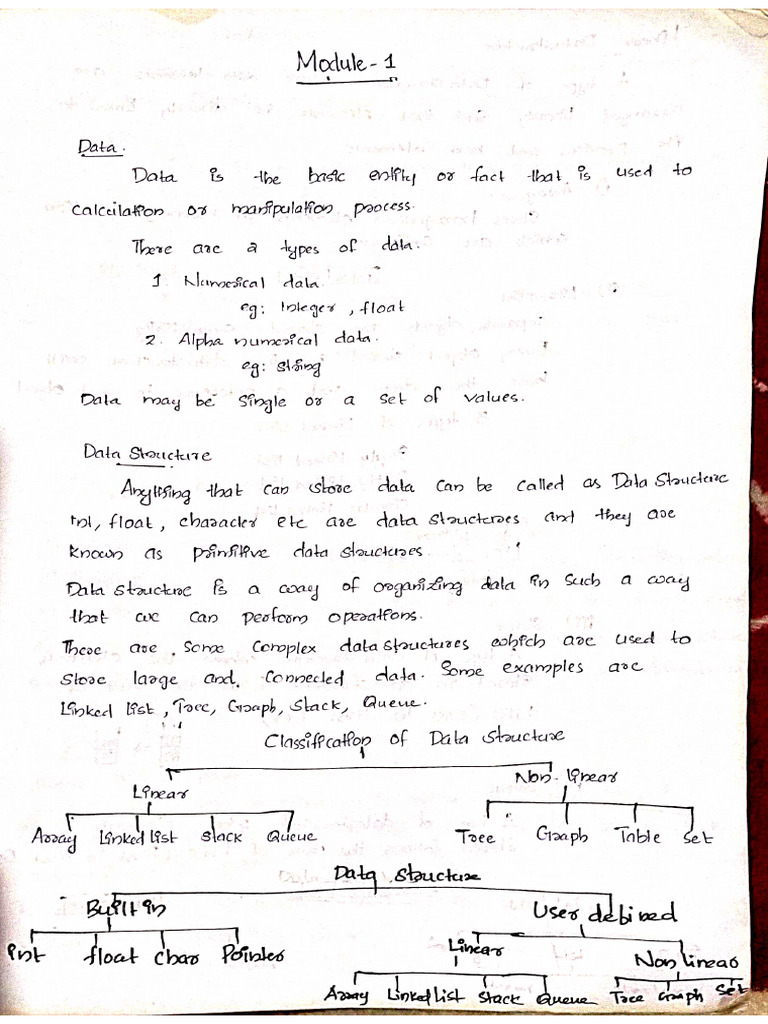 Module-1
Data.
Data is the basic entity or fact that is used to
calculation or manipulation process.
There are 2 types of data.
1. Numerical data
eg: Integer, float
2. Alpha numerical data.
eg: string
Data may be single or a set of values.
Data Structure
Anything that can store data can be called as Data Structure
Int, float, character etc are data structures and they are
known as primitive data structures.
Data structure is a way of organizing data in such a way
that we can perform operations.
There are some complex data structures which are used to
store large and connected data. Some examples are
Linked list, Tree, Graph, Stack, Queue.
Classification of Data Structure
Linear Non-linear
Array Linked list Stack Queue Tree Graph Table Set
Data Structure
Built in User debined
int float char Pointer Linear Non linear
Array Linked list Stack Queue Tree Graph Set